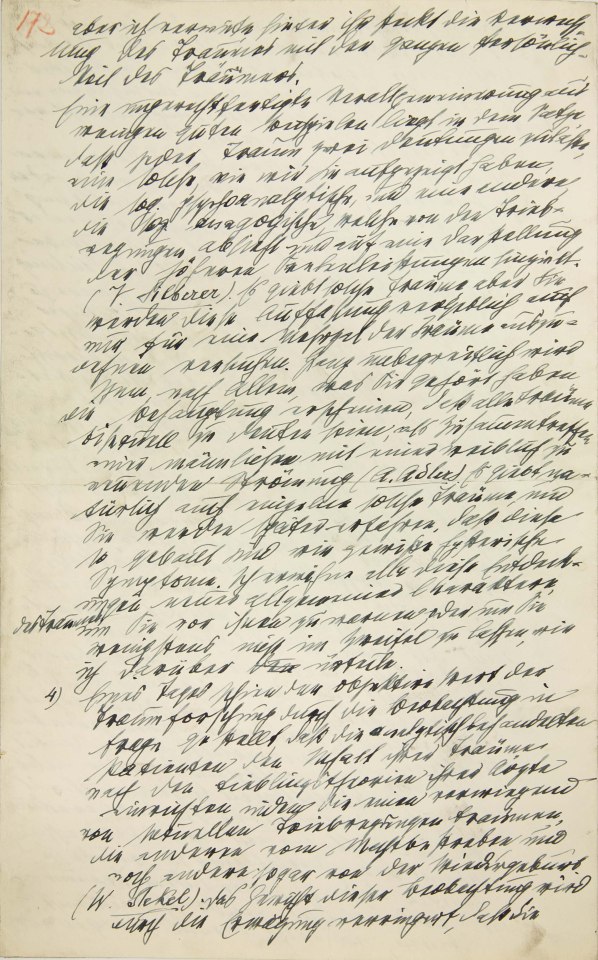 172
aber ich vermute hinter ihr steckt die Verwechs-
lung des Traumes mit der ganzen Persönlich-
keit des Träumers.
Eine ungerechtfertigte Verallgemeinerung aus
wenigen guten Beispielen liegt in dem Satze
daß jeder Traum zwei Deutungen zulasse,
eine solche, wie wir sie aufgezeigt haben,
die sog. psychoanalytische, und eine andere,
die sog. anagogische, welche von den Trieb-
regungen absieht und auf eine Darstellung
der höheren Seelenleistungen hinzielt.
(V. Silberer). Es giebt solche Träume aber Sie
werden diese Auffassung vergeblich auch
nur für eine Mehrzal der Träume auszu-
dehnen versuchen. Ganz unbegreiflich wird
Ihnen, nach Allem, was Sie gehört haben
die Behauptung erscheinen, daß alle Träume
bisexuell zu deuten seien, als Zusammentreffen
einer männlichen mit einer weiblich zu
nennenden Strömung (A. Adler) Es giebt na-
türlich auch einzelne solche Träume und
Sie werden später erfahren, daß diese
so gebaut sind wie gewisse hysterische
Symptome. Ich erwähne alle diese Entdeck-
ungen neuer allgemeiner Charaktere
des Traumes
um Sie vor ihnen zu warnen oder um Sie
wenigstens nicht im Zweifel zu lassen, wie
ich darüber urteile.
4) Eines Tages schien der objektive Wert der
Traumforschung durch die Beobachtung in
Frage gestellt daß die analytisch behandelten
Patienten den Inhalt ihrer Träume
nach den Lieblingstheorien ihrer Ärzte
einrichten indem die einen vorwiegend
von sexuellen Triebregungen träumen,
die anderen vom Machtbestreben und
noch andere sogar von der Wiedergeburt
(W. Stekel). Das Gewicht dieser Beobachtung wird
durch die Erwägung verringert, daß die